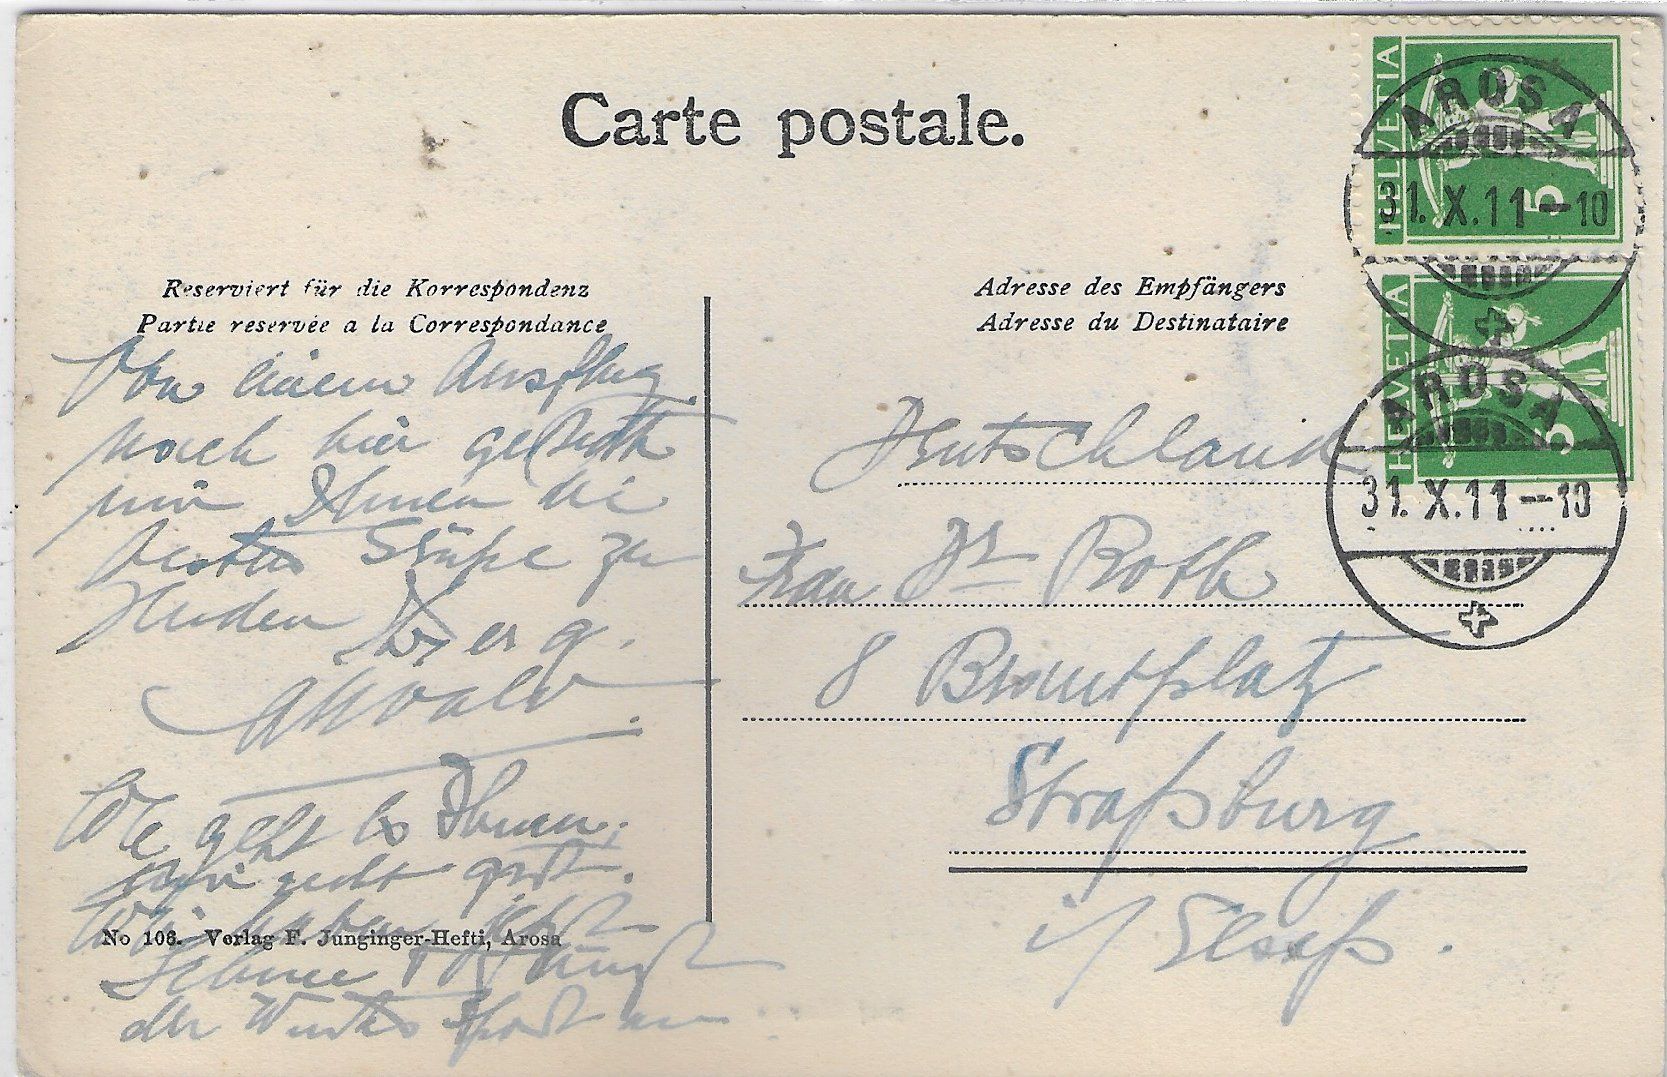 Carte postale.
HELVETIA
5
AROSA
31.X.11-10
HELVETIA
5
AROSA
31.X.11-10
Reserviert für die Korrespondenz
Partie reservée a la Correspondance
Adresse des Empfängers
Adresse du Destinataire
Von einem Ausflug
nach hier
wir Ihnen die
besten Grüße zu
senden
Wie geht es Ihnen,
recht gut.
Wir haben jetzt
Schnee
der Wintersport an
No 106. Verlag F. Junginger-Hefti, Arosa
Deutschland
Frau Dr Roth
8 Brantplatz
Straßburg
i/ Elsaß.